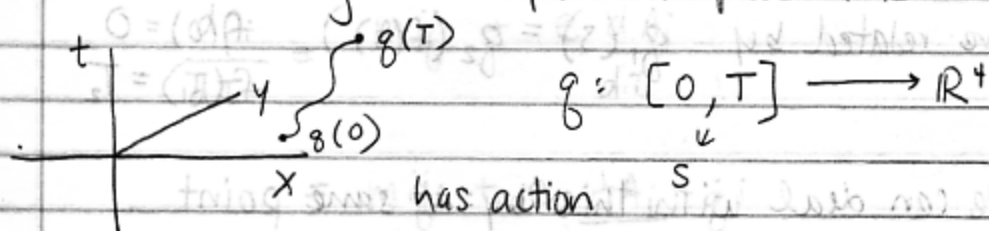 t
y
q(T)
q(0)
x
q: [0, T] ⟶ ℝ⁴
s
has action